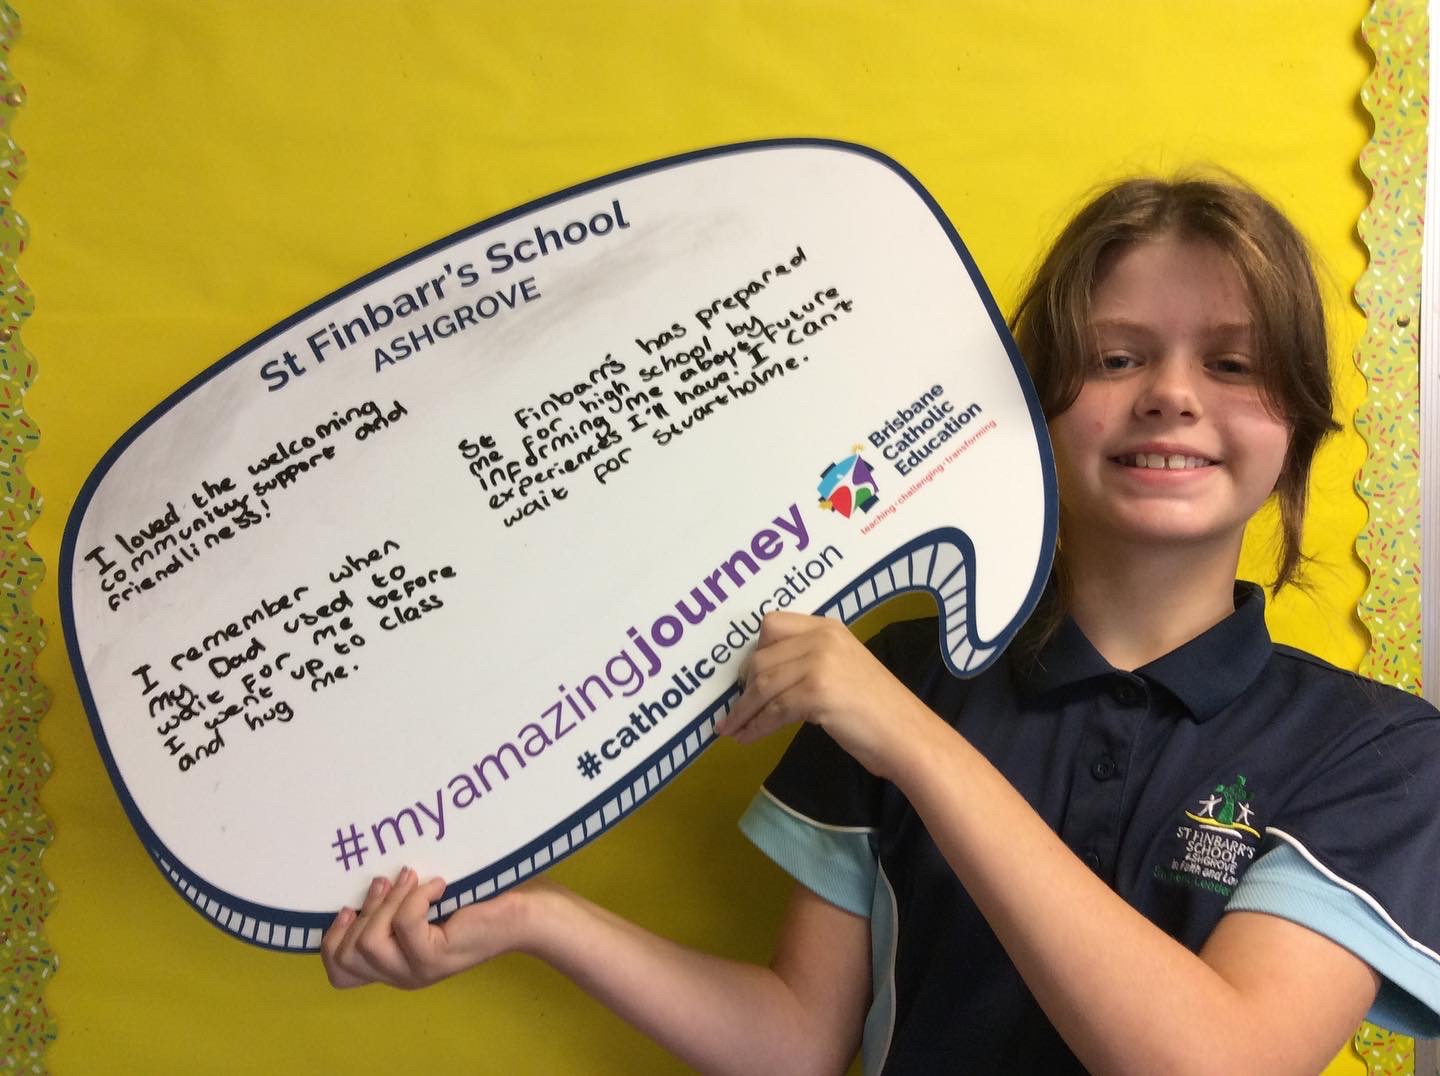 St Finbarr's School
ASHGROVE
I loved the welcoming
community support and
friendliness!
I remember when
my Dad used to
wait for me before
I went up to class
and hug me.
St Finbarr's has prepared
me for high school by
informing me about future
experiences I'll have! I can't
wait for Stuartholme.
Brisbane
Catholic
Education
teaching·challenging·transforming
#myamazingjourney
#catholiceducation
ST FINBARR'S
SCHOOL
ASHGROVE
In Faith and